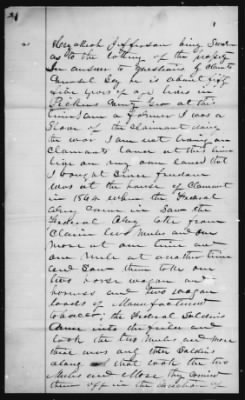 Jefferson being Sworn
as to the taking of the property
In answer to questions of Claimts
Counsel Say he is about fifty
five years of age lives in
Pickens County Geo at this
time I am a farmer I was a
Slave of the Claimant during
the war I am not living on
Claimants land at this time
live on my own land that
I bought Since freedom
was at the house of Claimant
in 1864 when the Federal
Army Come in Saw the
Federal Army take from
Claimt two Mules and one
Mare at one time and
one Mule at another time
and Saw them take one
two horse wagon and
harness and two wagon
loads of Manufactured
tobacco; the Federal Soldiers
Came into the field and
took the two Mules and mare
there was only three Soldiers
along that took the two
Mules and Mare they carried
them off in the direction of